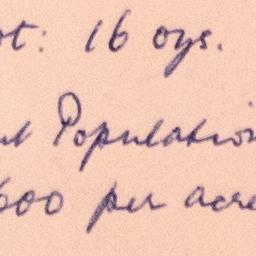 ot: 16 oys.
Population
600 per acre